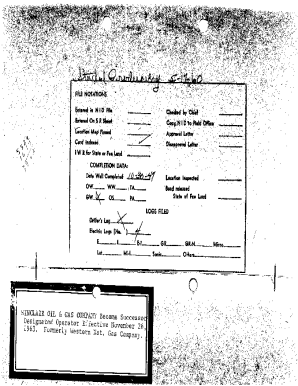 FILE NOTATIONS
Entered in NID File
Entered On S R Sheet
Location Map Pinned
Card Indexed
I W R for State or Fee Land
Checked by Chief
Copy NID to Field Office
Approval Letter
Disapproval Letter
COMPLETION DATA:
Date Well Completed 10-30-47
OW WW TA
GW OS PA
Location Inspected
Bond released
State of Fee Land
LOGS FILED
Driller's Log
Electric Logs (No. )
E I E-I GR GR-N Micro
Lat Mi-L Sonic Others
SINCLAIR OIL & GAS COMPANY Became Successor
Designated Operator Effective November 28,
1963. Formerly Western Nat. Gas Company.